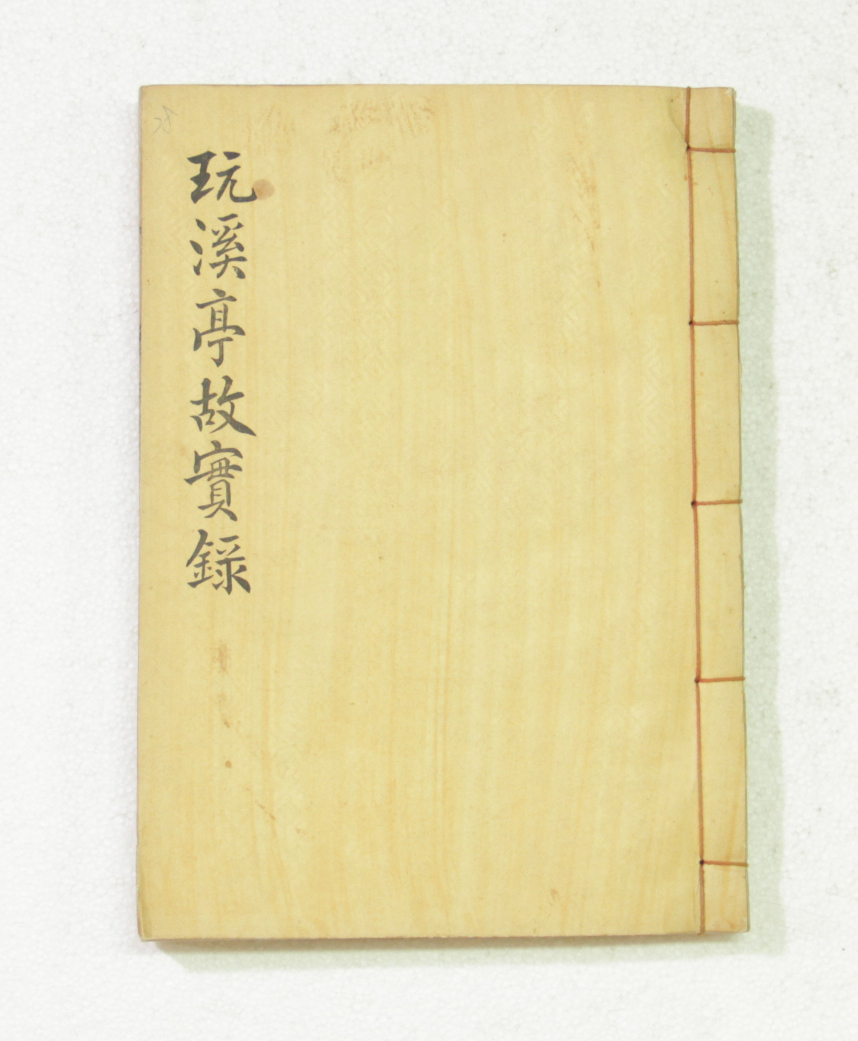 玩溪亭故實錄